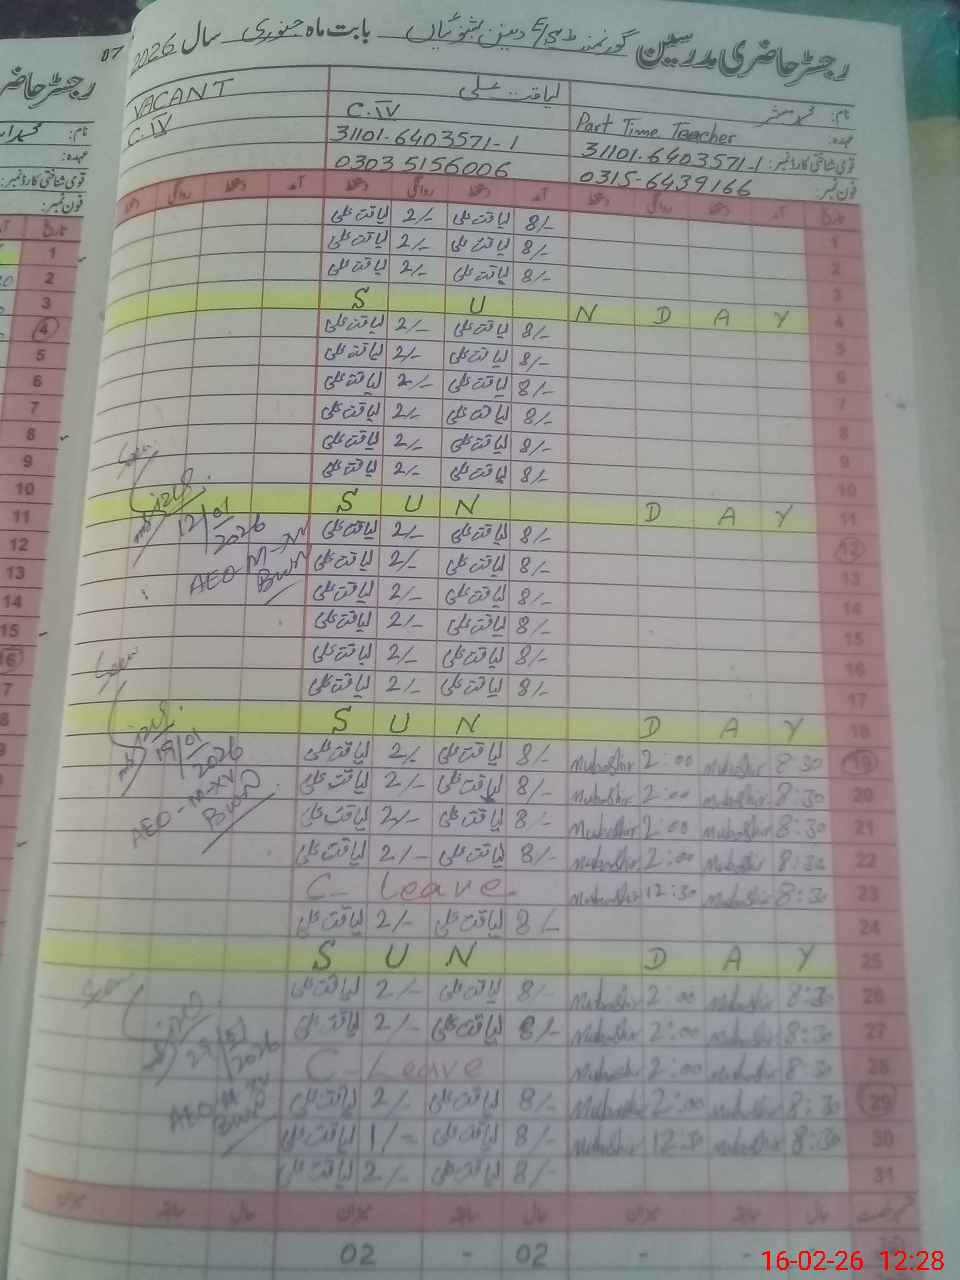 رجسٹر حاضری مدرسین گورنمنٹ بابت ماہ جنوری سال 2026
07
رجسٹر حاضری
نام: محمد مبشر لیاقت علی VACANT
عہدہ: Part Time Teacher C.IV C.IV
قومی شناختی کارڈ نمبر: 31101-6403571-1 31101-6403571-1
فون نمبر: 0315-6439166 0303 5156006
تاریخ آمد دستخط روانگی دستخط آمد دستخط روانگی دستخط آمد دستخط روانگی دستخط
1 8/- لیاقت علی 2/- لیاقت علی
2 8/- لیاقت علی 2/- لیاقت علی
3 8/- لیاقت علی 2/- لیاقت علی
4 S U N D A Y
5 8/- لیاقت علی 2/- لیاقت علی
6 8/- لیاقت علی 2/- لیاقت علی
7 8/- لیاقت علی 2/- لیاقت علی
8 8/- لیاقت علی 2/- لیاقت علی
9 8/- لیاقت علی 2/- لیاقت علی
10 8/- لیاقت علی 2/- لیاقت علی
11 S U N D A Y
12 8/- لیاقت علی 2/- لیاقت علی
13 8/- لیاقت علی 2/- لیاقت علی
14 8/- لیاقت علی 2/- لیاقت علی
15 8/- لیاقت علی 2/- لیاقت علی
16 8/- لیاقت علی 2/- لیاقت علی
17 8/- لیاقت علی 2/- لیاقت علی
18 S U N D A Y
19 8:30 Mubashir 2:00 Mubashir 8/- لیاقت علی 2/- لیاقت علی
20 8:30 Mubashir 2:00 Mubashir 8/- لیاقت علی 2/- لیاقت علی
21 8:30 Mubashir 2:00 Mubashir 8/- لیاقت علی 2/- لیاقت علی
22 8:30 Mubashir 2:00 Mubashir 8/- لیاقت علی 2/- لیاقت علی
23 8:30 Mubashir 12:30 Mubashir C- Leave-
24 8/- لیاقت علی 2/- لیاقت علی
25 S U N D A Y
26 8:30 Mubashir 2:00 Mubashir 8/- لیاقت علی 2/- لیاقت علی
27 8:30 Mubashir 2:00 Mubashir 8/- لیاقت علی 2/- لیاقت علی
28 8:30 Mubashir 2:00 Mubashir C- Leave
29 8:30 Mubashir 2:00 Mubashir 8/- لیاقت علی 2/- لیاقت علی
30 8:30 Mubashir 12:30 Mubashir 8/- لیاقت علی 1/= لیاقت علی
31 8/- لیاقت علی 2/- لیاقت علی
Seen
12/01/2026
AEO-M-XV
BWN
Seen
19/01/2026
AEO-M-XV
BWN
Seen
AEO-M-XV
BWN
حال سابقہ میزان حال سابقہ میزان حال سابقہ میزان
- - - 02 - 02
16-02-26 12:28